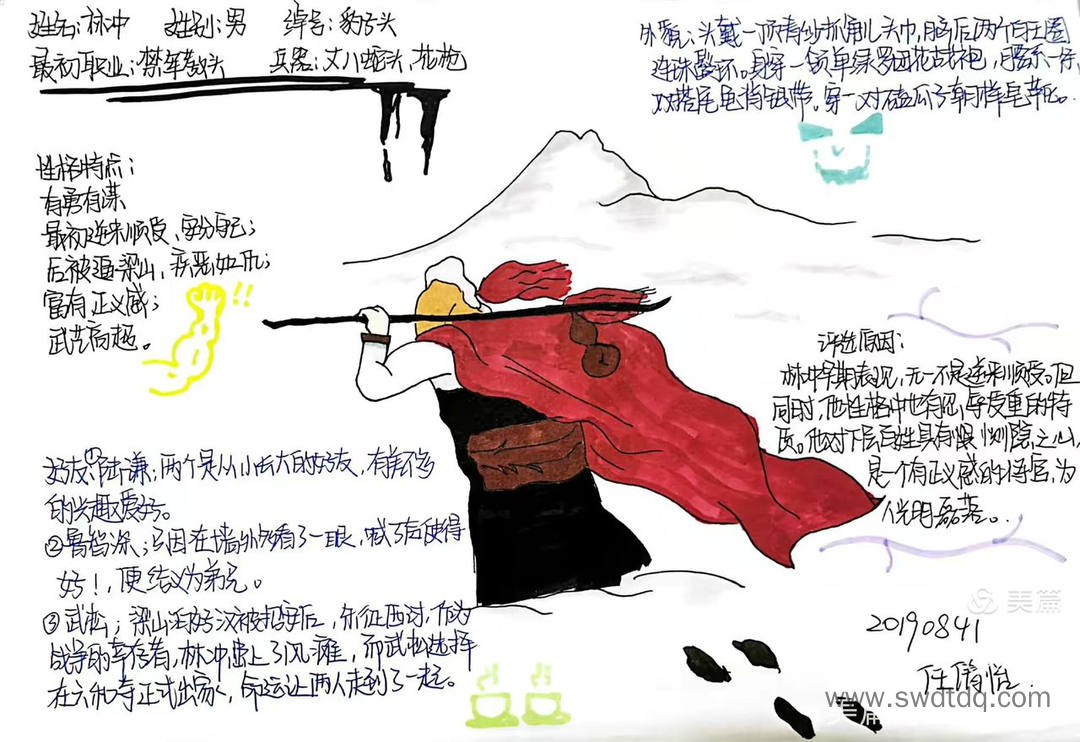 姓名:林冲 姓别:男 绰号:豹子头
最初职业:禁军教头 兵器:丈八蛇矛,花枪
外貌:头戴一顶青纱抓角儿头巾,脑后两个白玉圈
连珠鬓环。身穿一领单绿罗团花战袍,腰系一条
双搭尾龟背银带。穿一对磕瓜头朝样皂靴。
性格特点:
有勇有谋
最初逆来顺受,安分守己;
后被逼梁山,疾恶如仇;
富有正义感;
武艺高超。
!!
评选原因:
林冲早期表现,无一不是逆来顺受。但
同时,他性格中也有忍,辱负重的特
质。他对下层百姓具有恨 恻隐之心,
是一个有正义感的 ,为
人光明磊落。
好友:①陆谦;两个是从小 大的好友,有差不多
的兴趣爱好。
②鲁智深;只因在墙外多看了一眼,喊了句使得
好!,便结义为弟兄。
③武松;梁山泊好汉被招安后,东征西讨,作为
战争的幸存者,林冲患上了风瘫,而武松选择
在六和寺正式出家,命运让两人走到了一起。
美篇
20190841
www.swdtdq.com
美篇